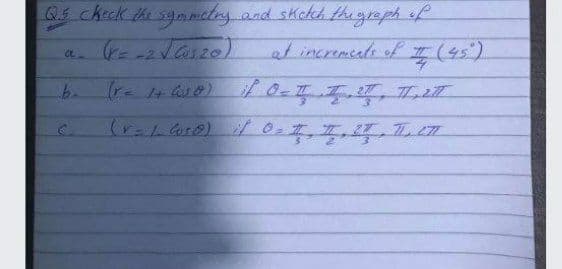 Q.5 check the symmetry and sketch the graph of
a- (r= -2√cos2θ) at increments of π/4 (45°)
b- (r= 1+ cosθ) if θ= π/3, π/2, 2π/3, π, 2π
c. (r=1- cosθ) if θ= π/3, π/2, 2π/3, π, 2π